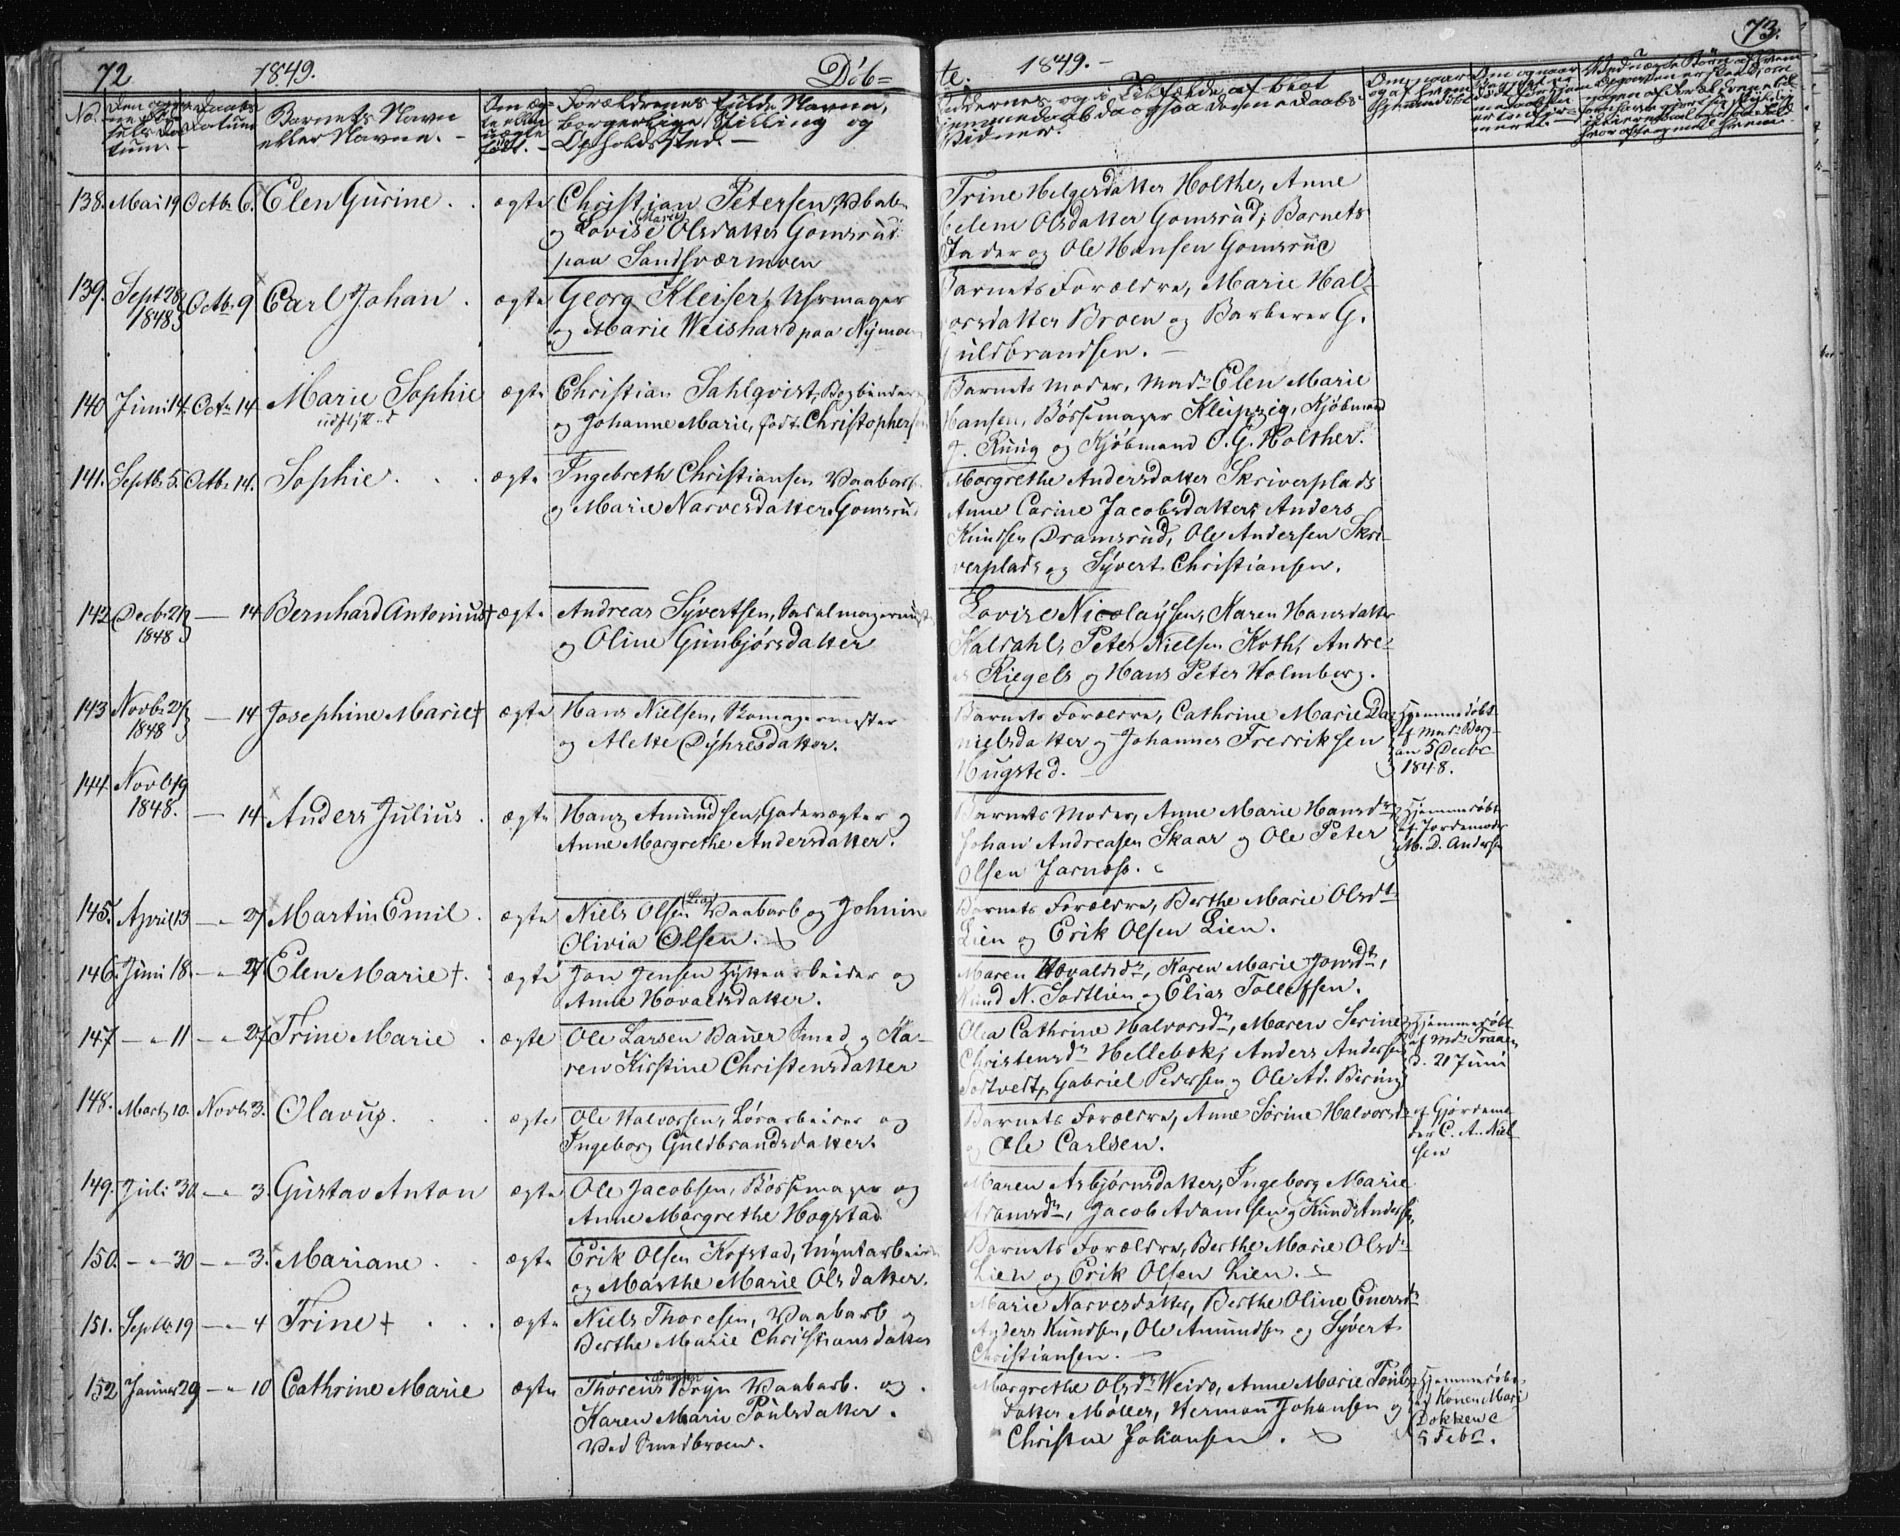 72 1849. Döb=
No.
Barnets Navn
eller Navne.
Forældrenes fulde Navne,
borgerlige Stilling og
Opholdssted.
138. Mai 19 Octb. 6. Elen Gurine. ægte Christian Petersen
og Lovise (Maren) Olsdatter Gomsrud
paa Sandsværmoen
139. Sept. 28 1848 Octb. 9 Carl Johan. ægte Georg Kleiser, Uhrmager
og Marie Weishard paa Nymoen
140 Juni 14. Octb. 14 Marie Sophie ægte Christian Sahlqvist, Bogbinder
og Johanne Marie, født Christophersen
141. Septb. 5. Octb. 14. Sophie. ægte Ingebreth Christiansen Vaabarb.
og Marie Narvesdatter Gomsrud
142 Decb. 21 1848 — 14 Bernhard Antonius + ægte Andreas Syvertsen, Sadelmagermester
og Oline Gunbjørsdatter
143 Novb. 27 1848 — 14 Josephine Marie + ægte Hans Nielsen, Skomagermester
og Alette Dyhresdatter.
144. Novb. 19 1848. — 14 Anders Julius. ægte Hans Amundsen, Gadevægter og
Anne Margrethe Andersdatter.
145. April 13 — " 27 Martin Emil. ægte Niels Olsen (Lia) Vaabarb og Johnine
Olivia Olsen.
146. Juni 18. — " 27 Elen Marie +. ægte Jon Jensen Hyttearbeider og
Anne Hovaldsdatter.
147 — " 11 — " 27 Trine Marie ægte Ole Larsen Bauer Smed og Ka-
ren Kirstine Christensdatter
148. Marts 10. Novb. 3. Olavus. ægte Ole Halvorsen, Lørarbeider og
Ingeborg Guldbrandsdatter.
149. Juli 30. — " 3. Gustav Anton ægte Ole Jacobsen, Bøssemager og
Anne Margrethe Hogstad
150. — " 30 — " 3. Mariane ægte Erik Olsen Kofstad, Myntarbeider
og Marthe Marie Olsdatter.
151. Septb. 19 — " 4 Trine + ægte Niels Thoresen, Vaabarb og
Berthe Marie Christiansdatter
152 Januar 29 — " 10 Cathrine Marie ægte Thorcius Bryn Vaabarb. og
Karen Marie Poulsdatter.
Ved Smedbroen.
te. 1849. 73.
Faddernes, og i Tilfælde af blot
Hjemmedaab da ogsaa dennes Daabs
Vidner.
Trine Helgesdatter Holthe, Anne
Helene Olsdatter Gomsrud, Barnets
Fader og Ole Hansen Gomsrud
Barnets Forældre, Marie Hal-
vorsdatter Broen og Barberer G.
Guldbrandsen.
Barnets Moder, Mad. Elen Marie
Hansen, Bøssemager Kleipzig, Kjøbmand
og Kjøbmand C. G. Holther.
Margrethe Andersdatter Skriverplads
Anne Carine Jacobsdatter, Anders
Knudsen Dramsrud, Ole Andersen Skri-
verplads og Syvert Christiansen.
Lovise Nicolaysen, Karen Hansdatter
Kaldahl, Peter Nielsen Koth, Andre-
as Riegels og Hans Peter Holmberg.
Barnets Forældre, Cathrine Marie Da-
nielsdatter og Johannes Fredriksen
Hugsted.
Hjemmedøbt
af Mad. Berg
den 5 Decbr
1848.
Barnets Moder, Anne Marie Hansdr
Johan Andreasen Skaar og Ole Peter
Olsen Jarnæs.
Hjemmedøbt
af Jordemoder
M. D. Andersen
Barnets Forældre, Berthe Marie Olsdr
Lien og Erik Olsen Lien.
Maren Hovaldsdr, Karen Marie Jonsdr,
Knud N. Sodtlien og Elias Tollefsen.
Olea Cathrine Halvorsdr, Maren Serine
Christensdr Hellebek, Anders Andersen
Gabriel Pedersen og Ole Ad. Bering
Hjemmedøbt
af Md. Traaen
d. 21 Juni
Barnets Forældre, Anne Sørine Halvorsdr
og Ole Carlsen.
af Gjordemo-
der C. A. Niel-
sen
Maren Asbjørnsdatter, Ingeborg Marie
Adamsdr, Jacob Adamsen og Knud Andersen
Barnets Forældre, Berthe Marie Olsdr
Lien og Erik Olsen Lien.
Marie Narvesdatter, Berthe Oline Enersdr
Anders Knudsen, Ole Amundsen og Syvert
Christiansen.
Margrethe Olsdr Weide, Anne Marie Pouls-
datter Møller, Herman Johansen og
Christian Johansen.
Hjemmedøbt
af Konen Mari
Dokken
5 Febr.